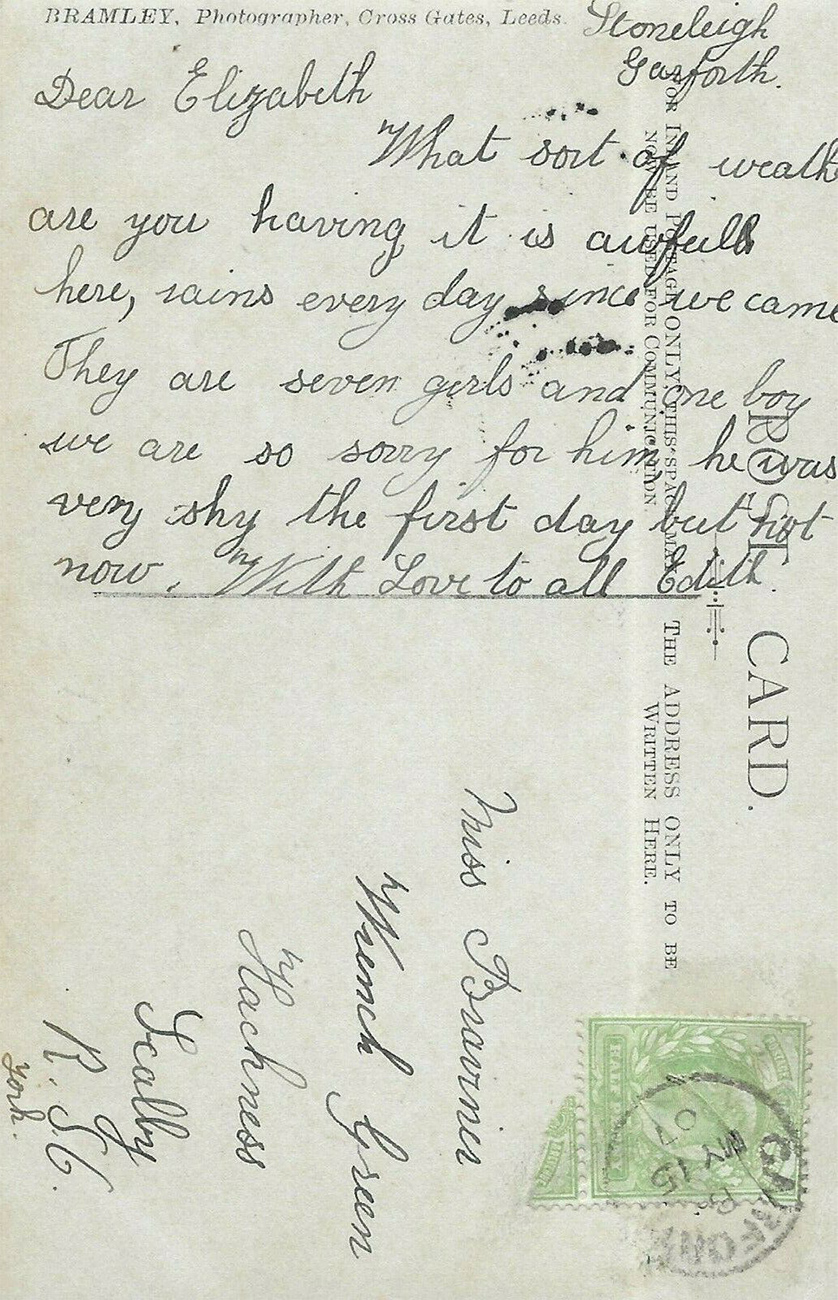 BRAMLEY, Photographer, Cross Gates, Leeds.
Stoneleigh
Garforth.
Dear Elizabeth
What sort of weath
are you having it is awfull
here, rains every day since we came
They are seven girls and one boy
we are so sorry for him, he was
very shy the first day but not
now. With Love to all Edith.
POST CARD.
FOR INLAND POSTAGE ONLY, THIS SPACE MAY
NOW BE USED FOR COMMUNICATION
THE ADDRESS ONLY TO BE
WRITTEN HERE.
Miss
Wrench Green
Hackness
Scalby
R. S. O.
York.
GARFORTH
MY 15
07